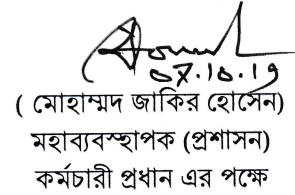 ০৭.১০.১৯
( মোহাম্মদ জাকির হোসেন)
মহাব্যবস্হাপক (প্রশাসন)
কর্মচারী প্রধান এর পক্ষে